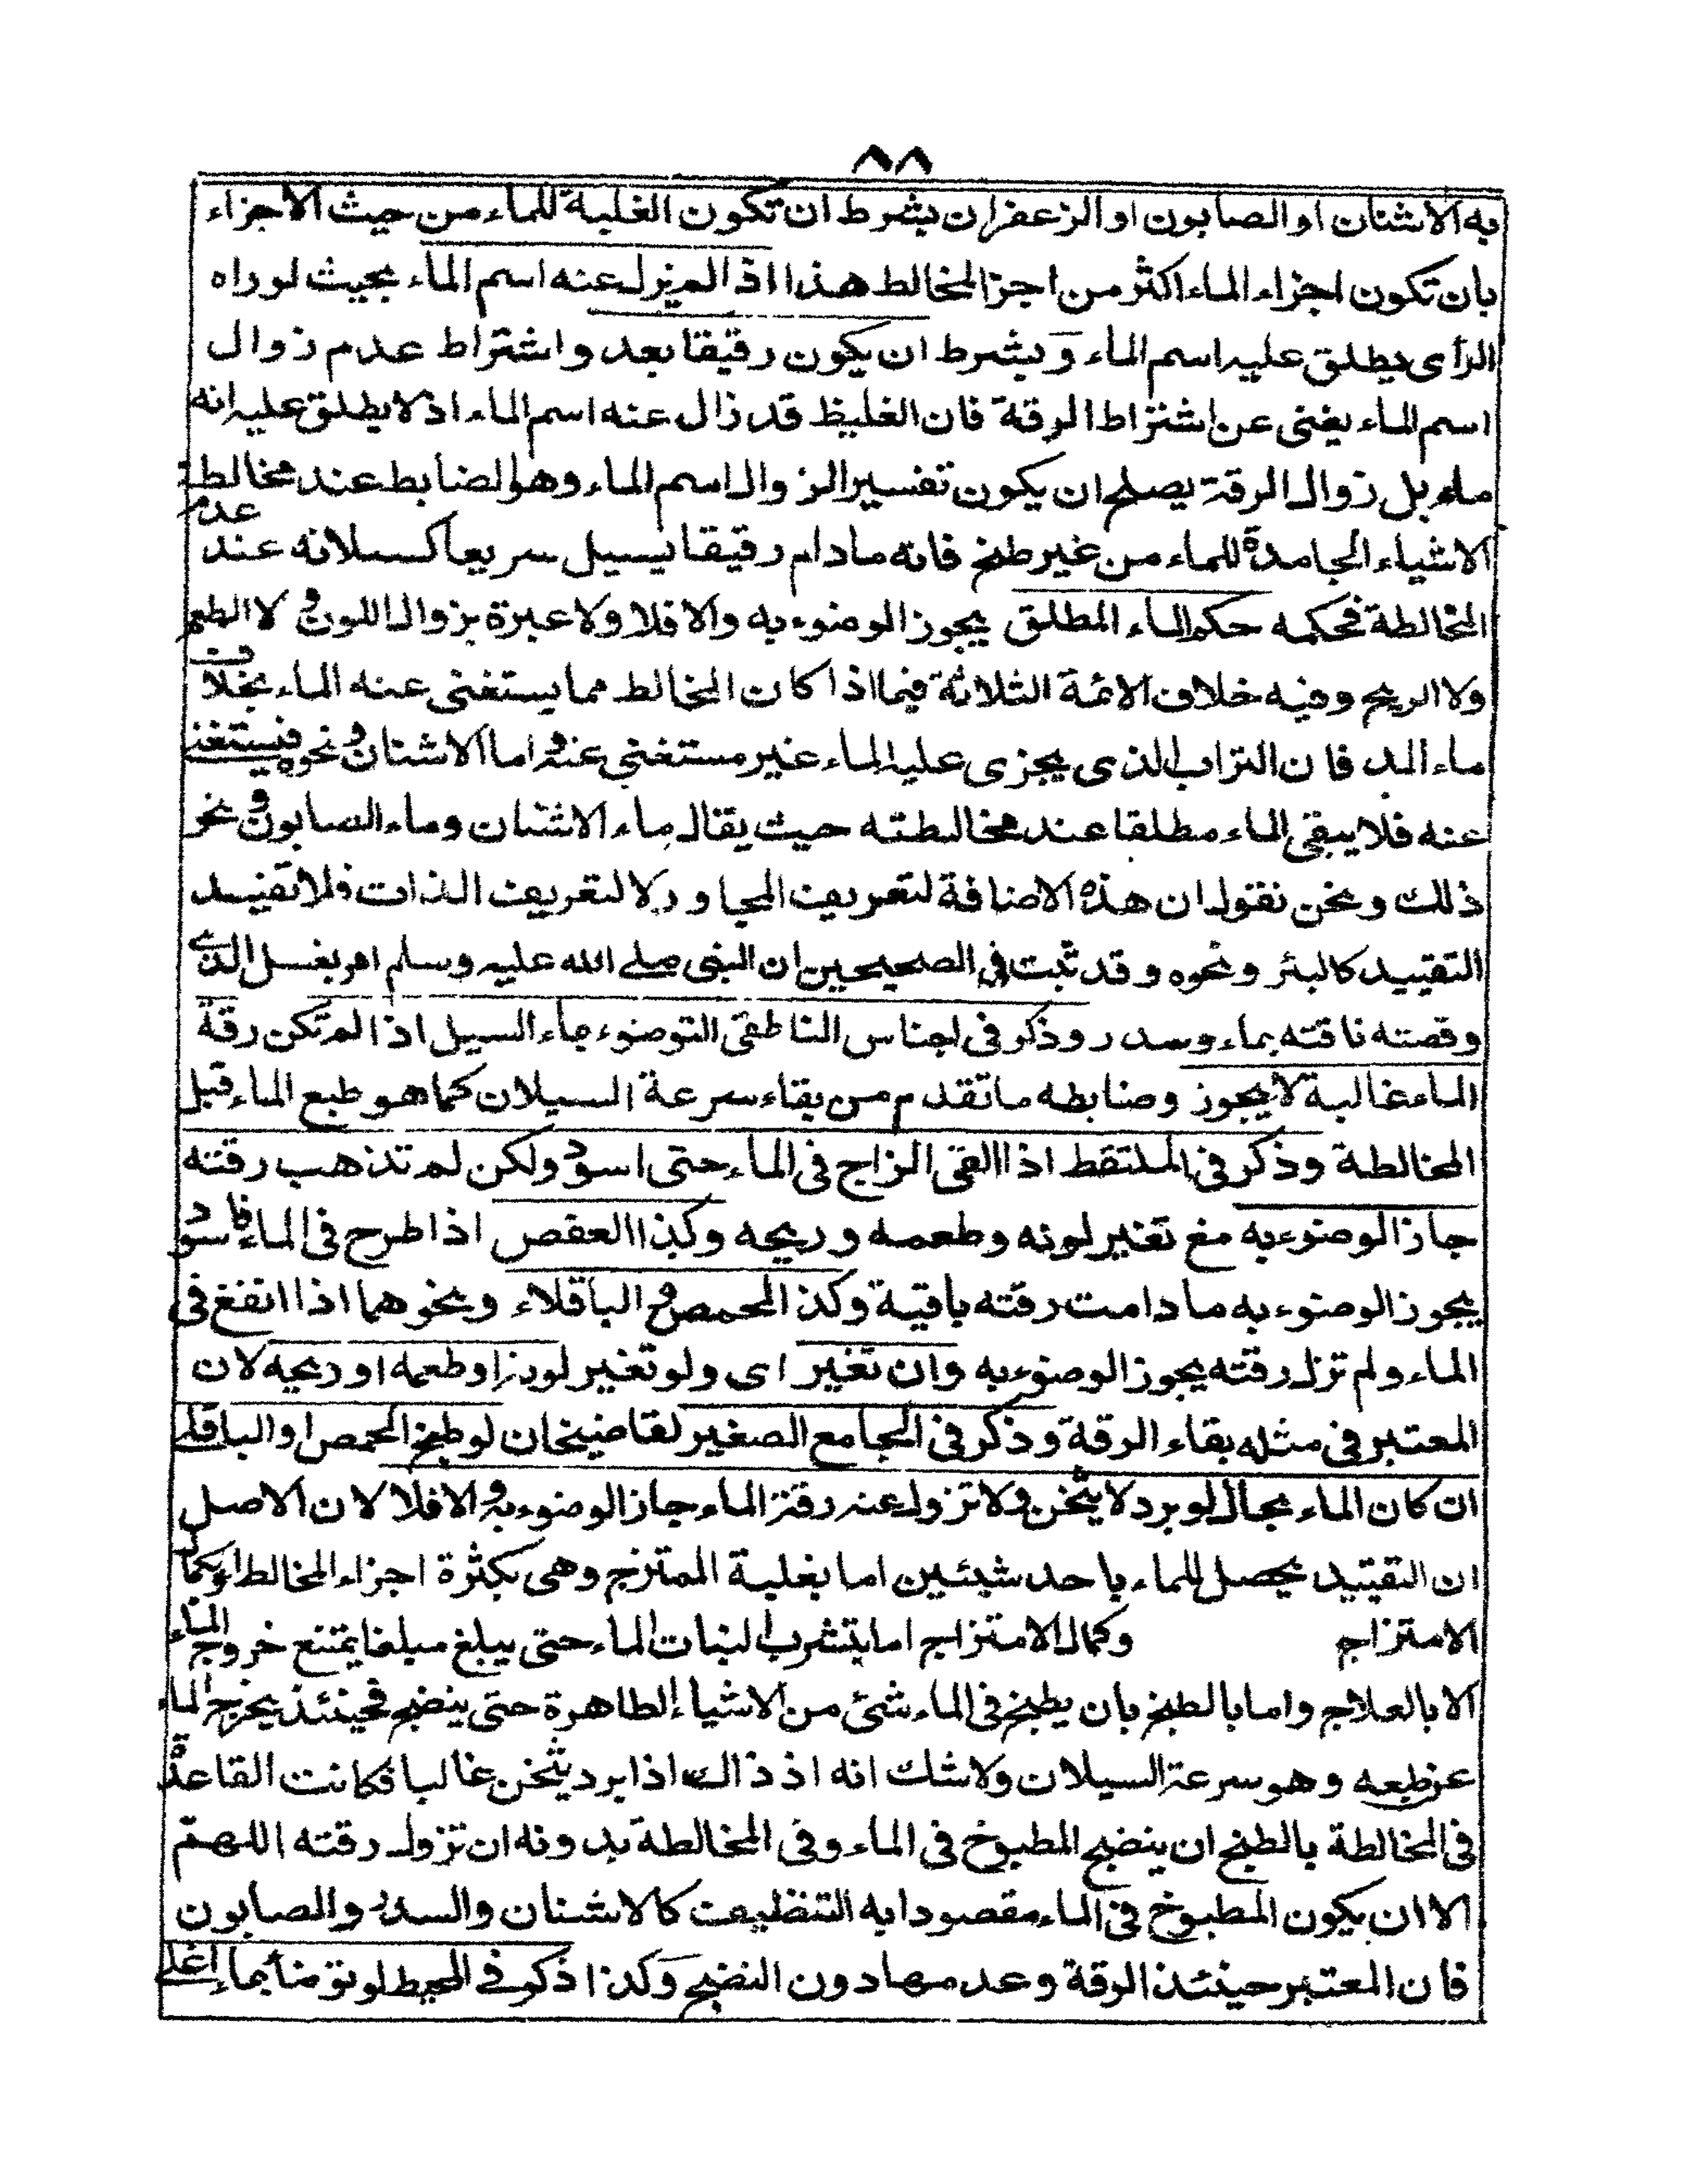 ٨٨
به الاشنان او الصابون او الزعفران بشرط ان تكون الغلبة للماء من حيث الاجزاء
بان تكون اجزاء الماء اكثر من اجزا المخالط هذا اذا لم يزل عنه اسم الماء بحيث لو راه
الرأى يطلق عليه اسم الماء وبشرط ان يكون رقيقا بعد واشتراط عدم زوال
اسم الماء يغنى عن اشتراط الرقة فان الغليظ قد زال عنه اسم الماء اذ لا يطلق عليه انه
ماء بل زوال الرقة يصلح ان يكون تفسيرا لزوال اسم الماء وهو الضابط عند مخالطة
الاشياء الجامدة للماء من غير طبخ فانه مادام رقيقا يسيل سريعا كسيلانه عند عدم
المخالطة فحكمه حكم الماء المطلق يجوز الوضوء به والا فلا ولا عبرة بزوال اللون و لا الطعم
ولا الريح وفيه خلاف الائمة الثلاثة فيما اذا كان المخالط مما يستغنى عنه الماء بخلاف
ماء المد فان التراب الذى يجرى عليه الماء غير مستغنى عنه و اما الاشنان و نحوه فيستغنى
عنه فلا يبقى الماء مطلقا عند مخالطته حيث يقال ماء الاشنان وماء الصابون و نحو
ذلك ونحن نقول ان هذه الاضافة لتعريف المجاور لا لتعريف الذات فلا تفيد
التقييد كالبئر ونحوه وقد ثبت فى الصحيحين ان النبى صلى الله عليه وسلم امر بغسل الذى
وقصته ناقته بماء وسدر وذكر فى اجناس الناطفى التوضوء بماء السيل اذا لم تكن رقة
الماء غالبة لا يجوز وضابطه ما تقدم من بقاء سرعة السيلان كما هو طبع الماء قبل
المخالطة وذكر فى الملتقط اذا القى الزاج فى الماء حتى اسود ولكن لم تذهب رقته
جاز الوضوء به مع تغير لونه وطعمه وريحه وكذا العفص اذا طرح فى الماء فاسود
يجوز الوضوء به ما دامت رقته باقية وكذا الحمص و الباقلاء ونحوهما اذا انقع فى
الماء ولم تزل رقته يجوز الوضوء به وان تغير اى ولو تغير لونه او طعمه او ريحه لان
المعتبر فى مثله بقاء الرقة وذكر فى الجامع الصغير لقاضيخان لو طبخ الحمص او الباقلى
ان كان الماء بحال لو برد لا يثخن ولا تزول عنه رقة الماء جاز الوضوء به و الا فلا لان الاصل
ان التقييد يحصل للماء باحد شيئين اما بغلبة الممتزج وهى بكثرة اجزاء المخالط او بكمال
الامتزاج وكمال الامتزاج اما بتشرب النبات الماء حتى يبلغ مبلغا يمتنع خروج الماء
الا بالعلاج واما بالطبخ بان يطبخ فى الماء شئ من الاشياء الطاهرة حتى ينضج فحينئذ يخرج الماء
عن طبعه وهو سرعة السيلان ولا شك انه اذ ذالك اذا برد يثخن غالبا فكانت القاعدة
فى المخالطة بالطبخ ان ينضج المطبوخ فى الماء وفى المخالطة بدونه ان تزول رقته اللهم
الا ان يكون المطبوخ فى الماء مقصودا به التنظيف كالاشنان والسدر والصابون
فان المعتبر حينئذ الرقة وعدمها دون النضج وكذا ذكر فى المحيط لو توضأ بماء اغلى